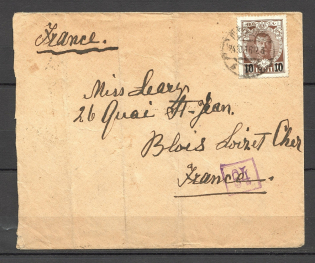 France.
10 10
Miss Leary
26 Quai St-Jean.
Blois Loiret Cher
France